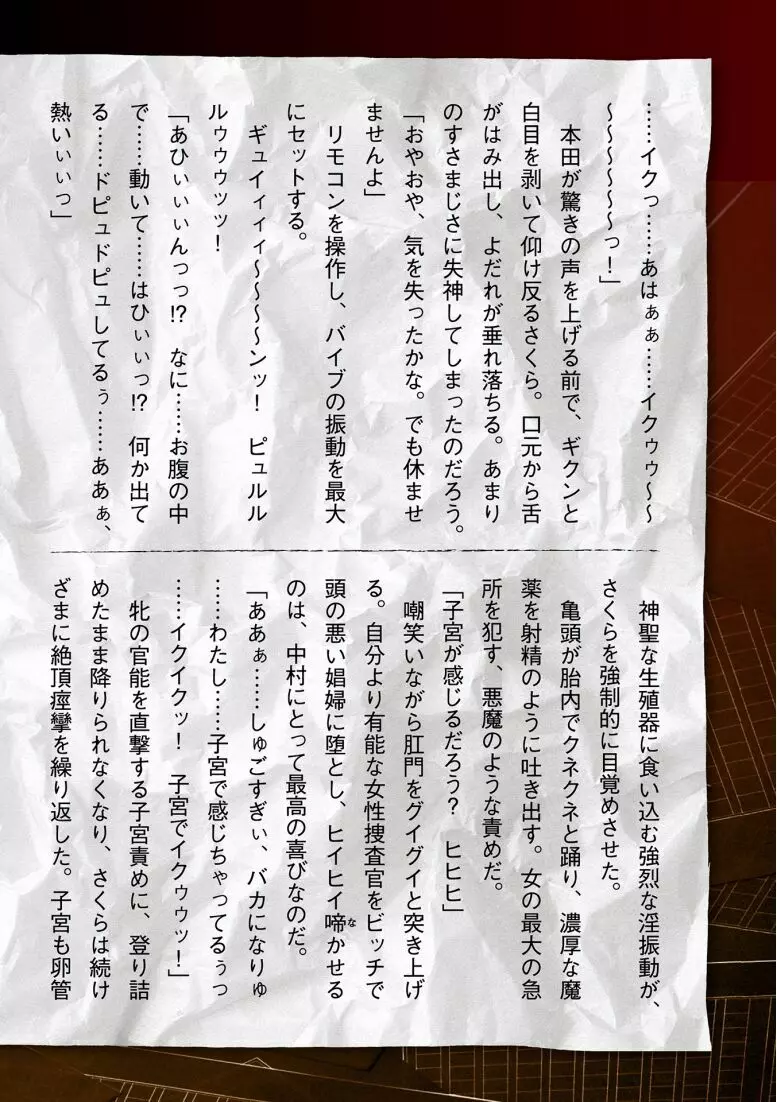 ……イクっ……あはぁぁ……イクゥゥ～～
～～～～～～っ！」
本田が驚きの声を上げる前で、ギクンと
白目を剥いて仰け反るさくら。口元から舌
がはみ出し、よだれが垂れ落ちる。あまり
のすさまじさに失神してしまったのだろう。
「おやおや、気を失ったかな。でも休ませ
ませんよ」
リモコンを操作し、バイブの振動を最大
にセットする。
ギュイィィィ～～～～ンッ！　ピュルル
ルゥゥウッッ！
「あひぃぃぃんっっ!?　なに……お腹の中
で……動いて……はひぃぃっ!?　何か出て
る……ドピュドピュしてるぅ……ああぁ、
熱いぃぃっ」
神聖な生殖器に食い込む強烈な淫振動が、
さくらを強制的に目覚めさせた。
亀頭が胎内でクネクネと踊り、濃厚な魔
薬を射精のように吐き出す。女の最大の急
所を犯す、悪魔のような責めだ。
「子宮が感じるだろう？　ヒヒヒ」
嘲笑いながら肛門をグイグイと突き上げ
る。自分より有能な女性捜査官をビッチで
頭の悪い娼婦に堕とし、ヒイヒイ啼かせる
のは、中村にとって最高の喜びなのだ。
「ああぁ……しゅごすぎぃ、バカになりゅ
……わたし……子宮で感じちゃってるぅっ
……イクイクッ！　子宮でイクゥゥッ！」
牝の官能を直撃する子宮責めに、登り詰
めたまま降りられなくなり、さくらは続け
ざまに絶頂痙攣を繰り返した。子宮も卵管